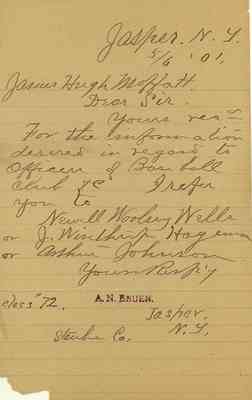 Jasper. N. Y.
5/6 '01,
James Hugh Moffatt.
Dear Sir.
Yours rec—
For the information
desired in regard to
Officers of Base ball
Club I refer
you to
Newell Woolsey Wells
or J. Winthrop Hageman
or Arthur Johnson
Yours Resp'y
A. N. BRUEN.
class '72.
Jasper.
Steuben Co. N. Y.